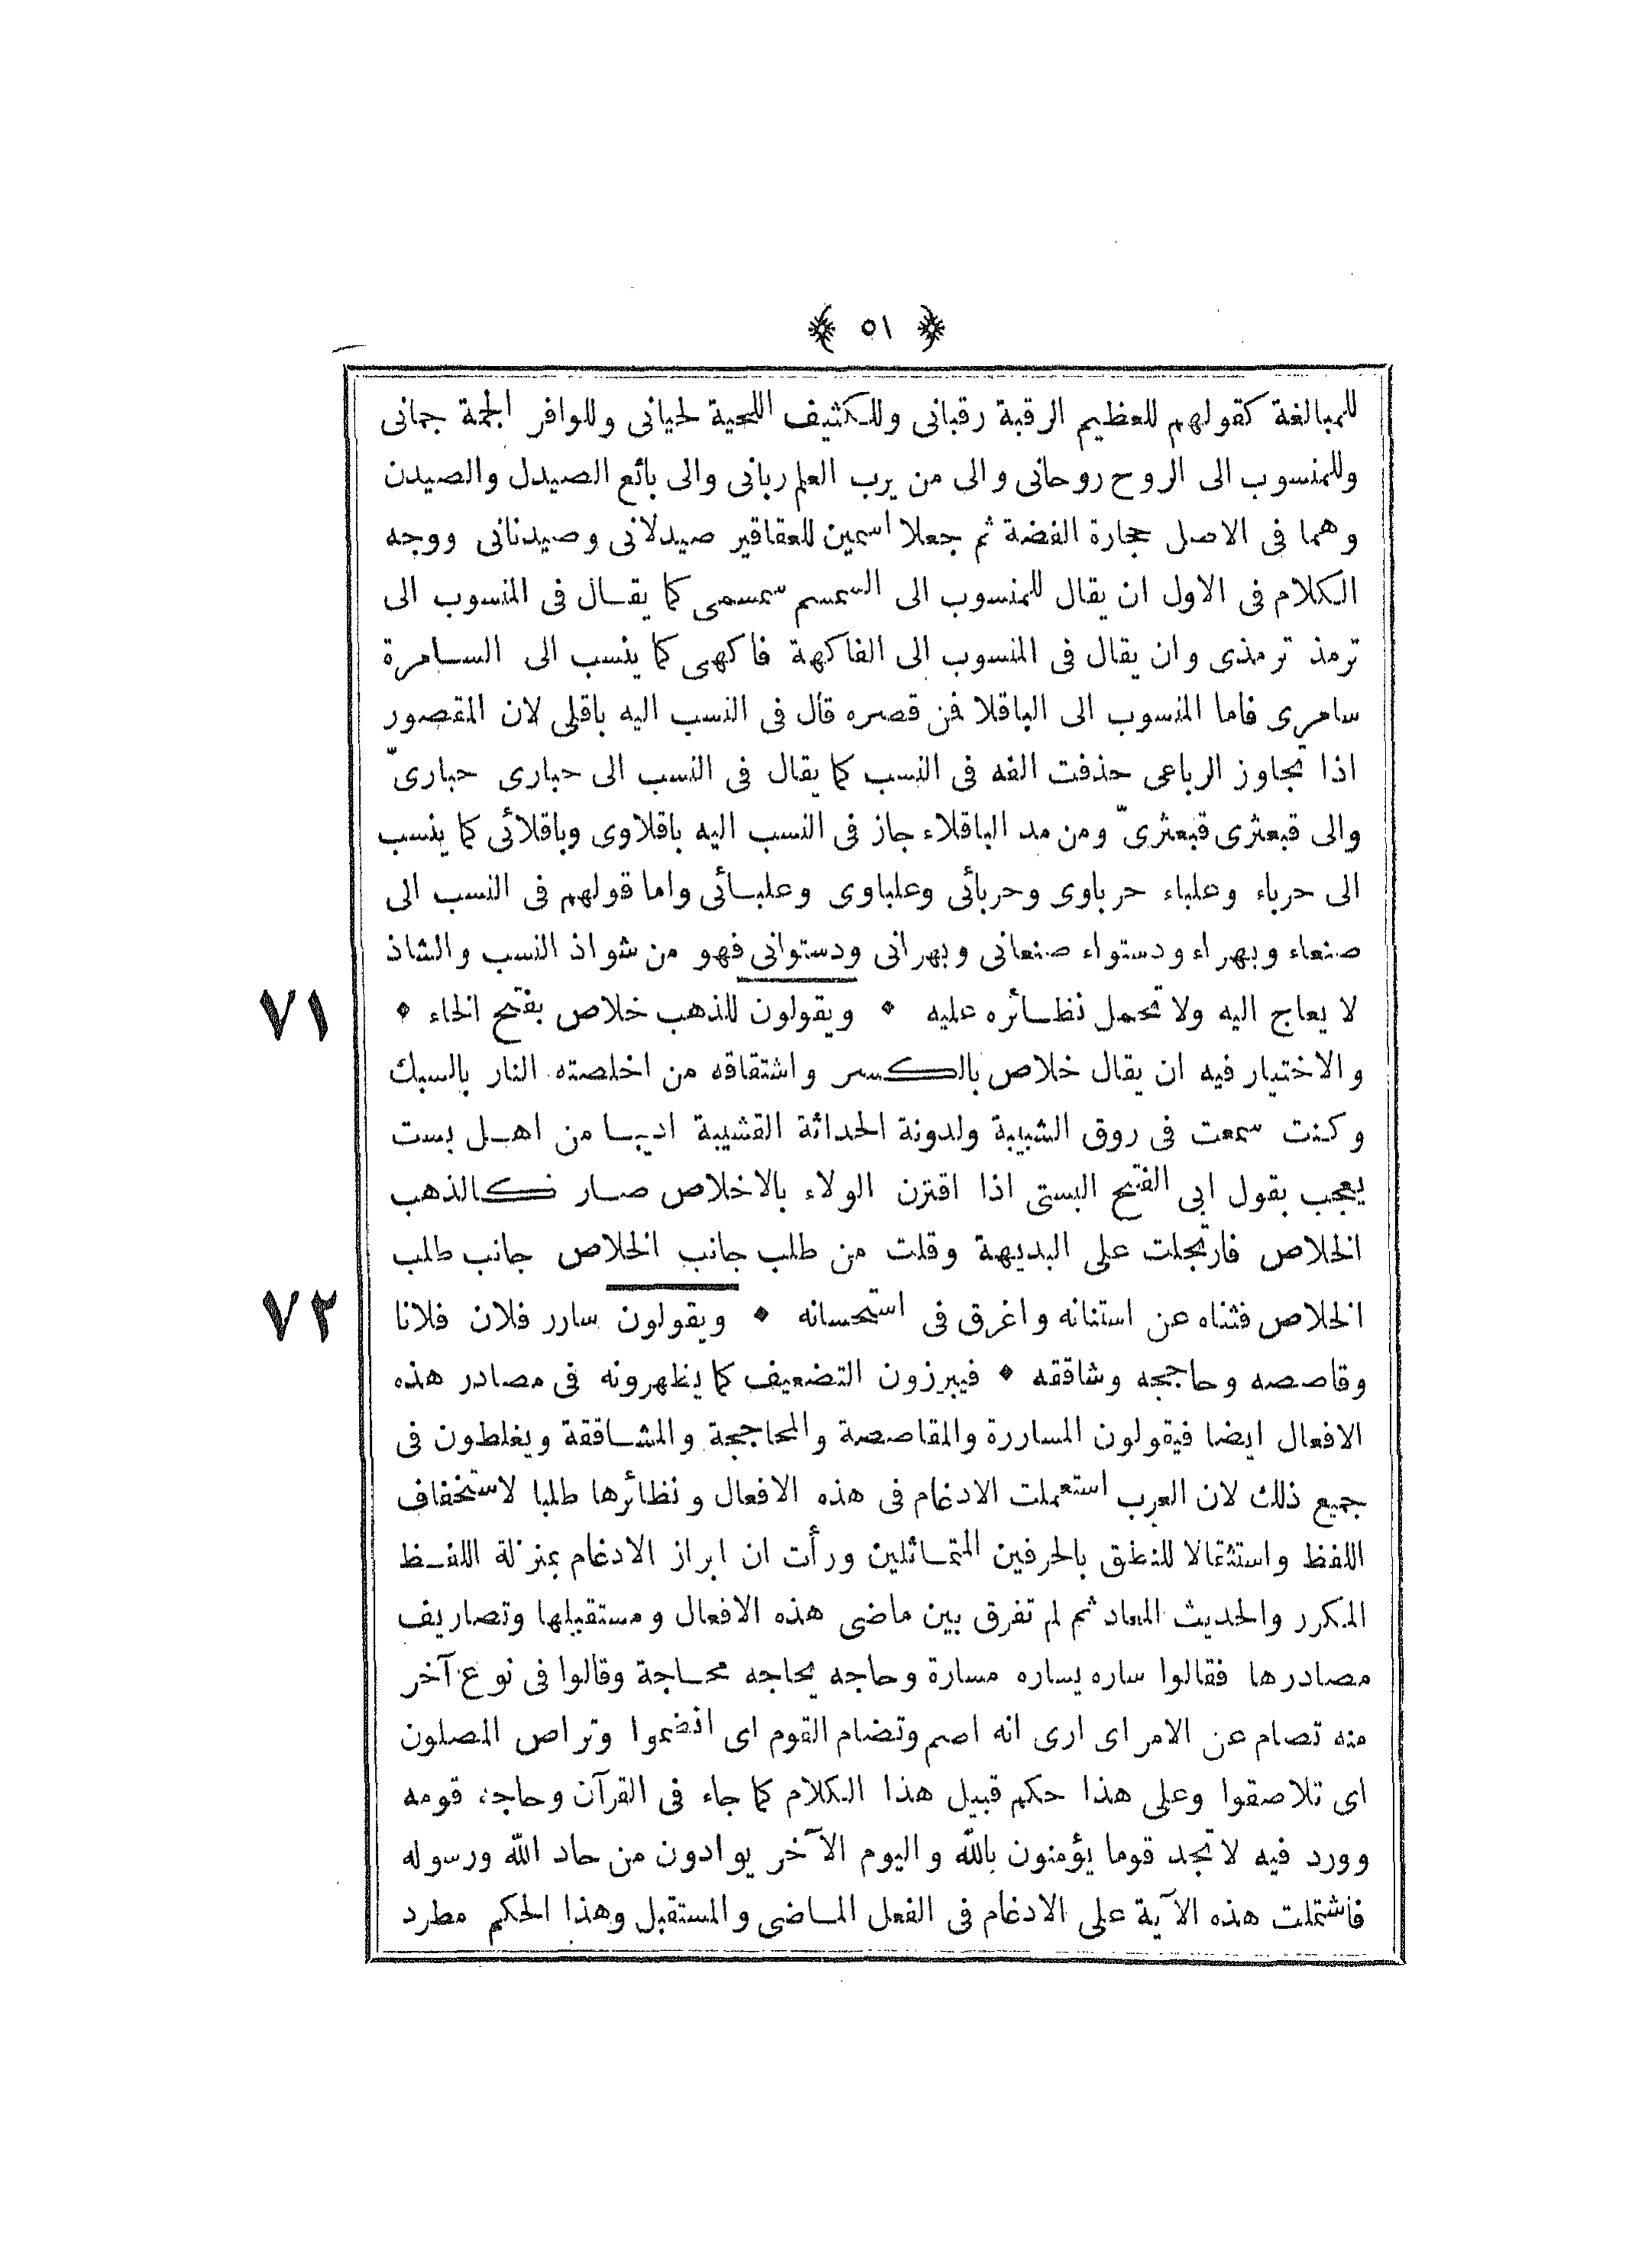 ﴿ ٥١ ﴾
للمبالغة كقولهم للعظيم الرقبة رقبانى وللكثيف اللحية لحيانى وللوافر الجمة جمانى
وللمنسوب الى الروح روحانى والى من يرب العلم ربانى والى بائع الصيدل والصيدن
وهما فى الاصل حجارة الفضة ثم جعلا اسمين للعقاقير صيدلانى وصيدنانى ووجه
الكلام فى الاول ان يقال للمنسوب الى السمسم سمسمى كما يقال فى المنسوب الى
ترمذ ترمذى وان يقال فى المنسوب الى الفاكهة فاكهى كما ينسب الى السامرة
سامرى فاما المنسوب الى الباقلا فمن قصره قال فى النسب اليه باقلى لان المقصور
اذا تجاوز الرباعى حذفت الفه فى النسب كما يقال فى النسب الى حبارى حبارىّ
والى قبعثرى قبعثرىّ ومن مد الباقلاء جاز فى النسب اليه باقلاوى وباقلائى كما ينسب
الى حرباء وعلباء حرباوى وحربائى وعلباوى وعلبائى واما قولهم فى النسب الى
صنعاء وبهراء ودستواء صنعانى وبهرانى ودستوانى فهو من شواذ النسب والشاذ
٧١ لا يعاج اليه ولا تحمل نظائره عليه * ويقولون للذهب خلاص بفتح الخاء *
والاختيار فيه ان يقال خلاص بالكسر واشتقاقه من اخلصته النار بالسبك
وكنت سمعت فى روق الشبيبة ولدونة الحداثة القشيبة اديبا من اهل بست
يعجب بقول ابى الفتح البستى اذا اقترن الولاء بالاخلاص صار كالذهب
الخلاص فارتجلت على البديهة وقلت من طلب جانب الخلاص جانب طلب
٧٢ الخلاص فثناه عن استنانه واغرق فى استحسانه * ويقولون سارر فلان فلانا
وقاصصه وحاججه وشاققه * فيبرزون التضعيف كما يظهرونه فى مصادر هذه
الافعال ايضا فيقولون المساررة والمقاصصة والمحاججة والمشاققة ويغلطون فى
جميع ذلك لان العرب استعملت الادغام فى هذه الافعال ونظائرها طلبا لاستخفاف
اللفظ واستثقالا للنطق بالحرفين المتماثلين ورأت ان ابراز الادغام بمنزلة اللفظ
المكرر والحديث المعاد ثم لم تفرق بين ماضى هذه الافعال ومستقبلها وتصاريف
مصادرها فقالوا ساره يساره مسارة وحاجه يحاجه محاجة وقالوا فى نوع آخر
منه تصام عن الامر اى ارى انه اصم وتضام القوم اى انضموا وتراص المصلون
اى تلاصقوا وعلى هذا حكم قبيل هذا الكلام كما جاء فى القرآن وحاجه قومه
وورد فيه لا تجد قوما يؤمنون بالله واليوم الآخر يوادون من حاد الله ورسوله
فاشتملت هذه الآية على الادغام فى الفعل الماضى والمستقبل وهذا الحكم مطرد